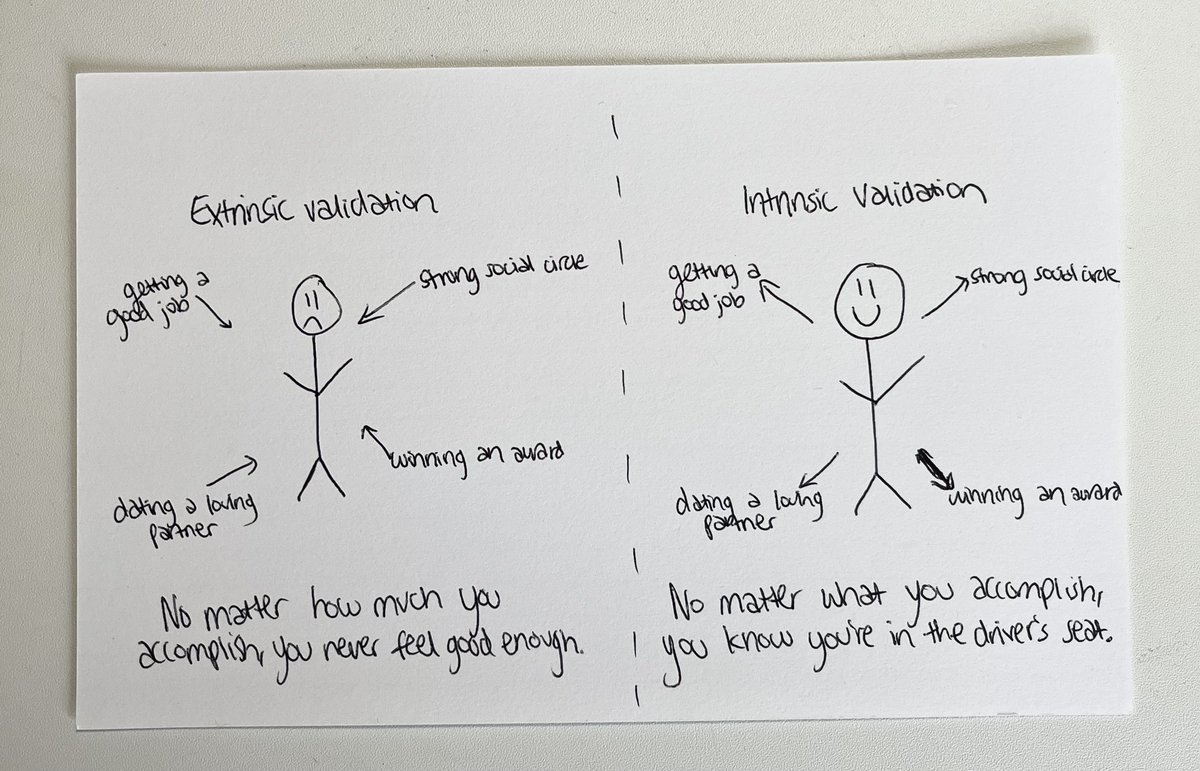 Extrinsic validation
getting a
good job
strong social circle
dating a loving
partner
winning an award
No matter how much you
accomplish, you never feel good enough.
Intrinsic validation
getting a
good job
strong social circle
dating a loving
partner
winning an award
No matter what you accomplish,
you know you're in the driver's seat.